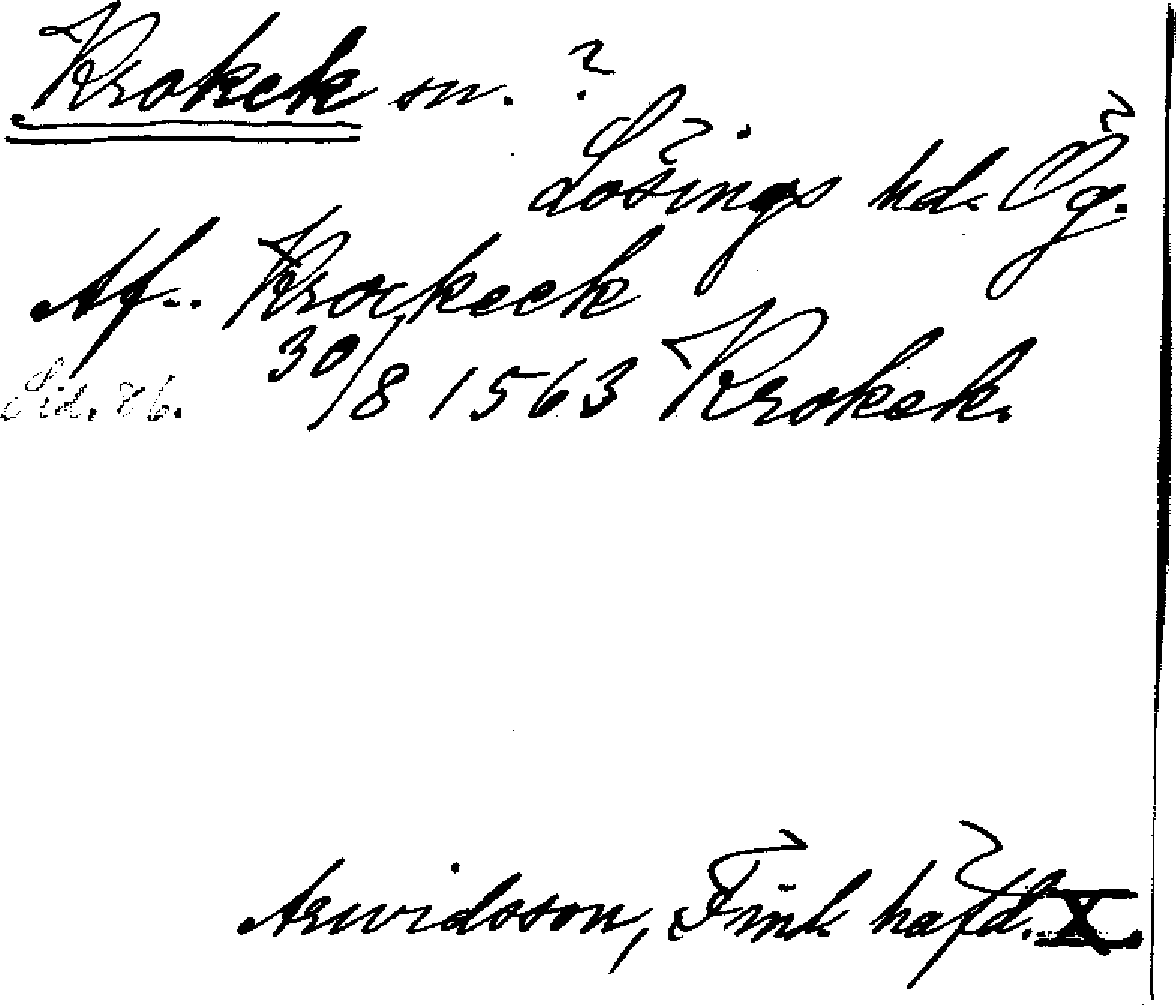 Krokek sn. ?
Lösings hd. Ög.
Af.. Krockeek
Sid. 86. 30/8 1563 Krokek.
Arwidsson, Finl. häfd. X.